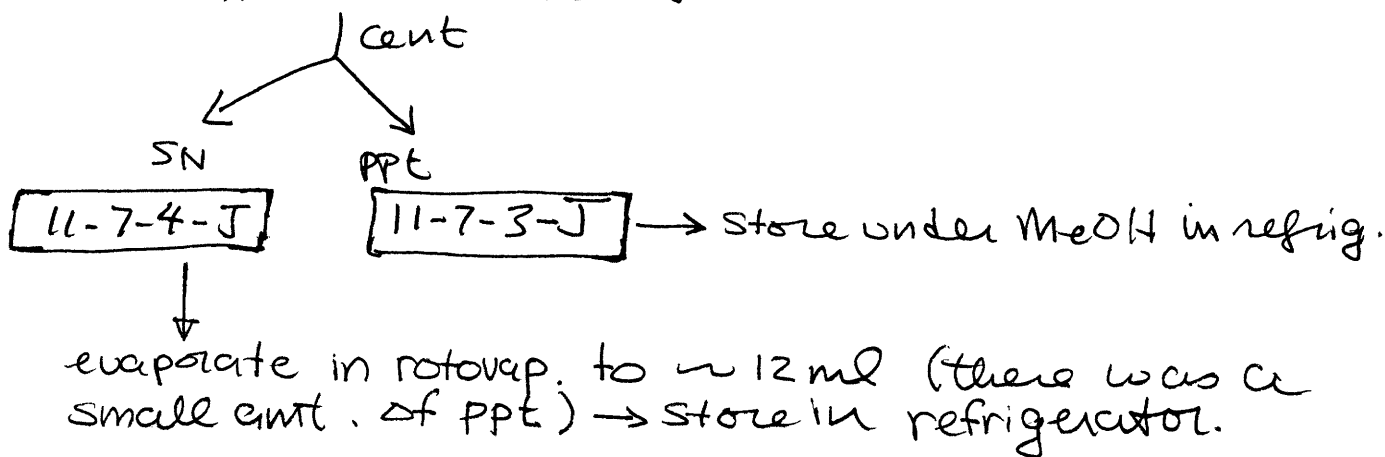 cent
SN ppt
11-7-4-J 11-7-3-J → store under MeOH in refrig.
evaporate in rotovap. to ~ 12 ml (there was a
small amt. of ppt) → store in refrigerator.